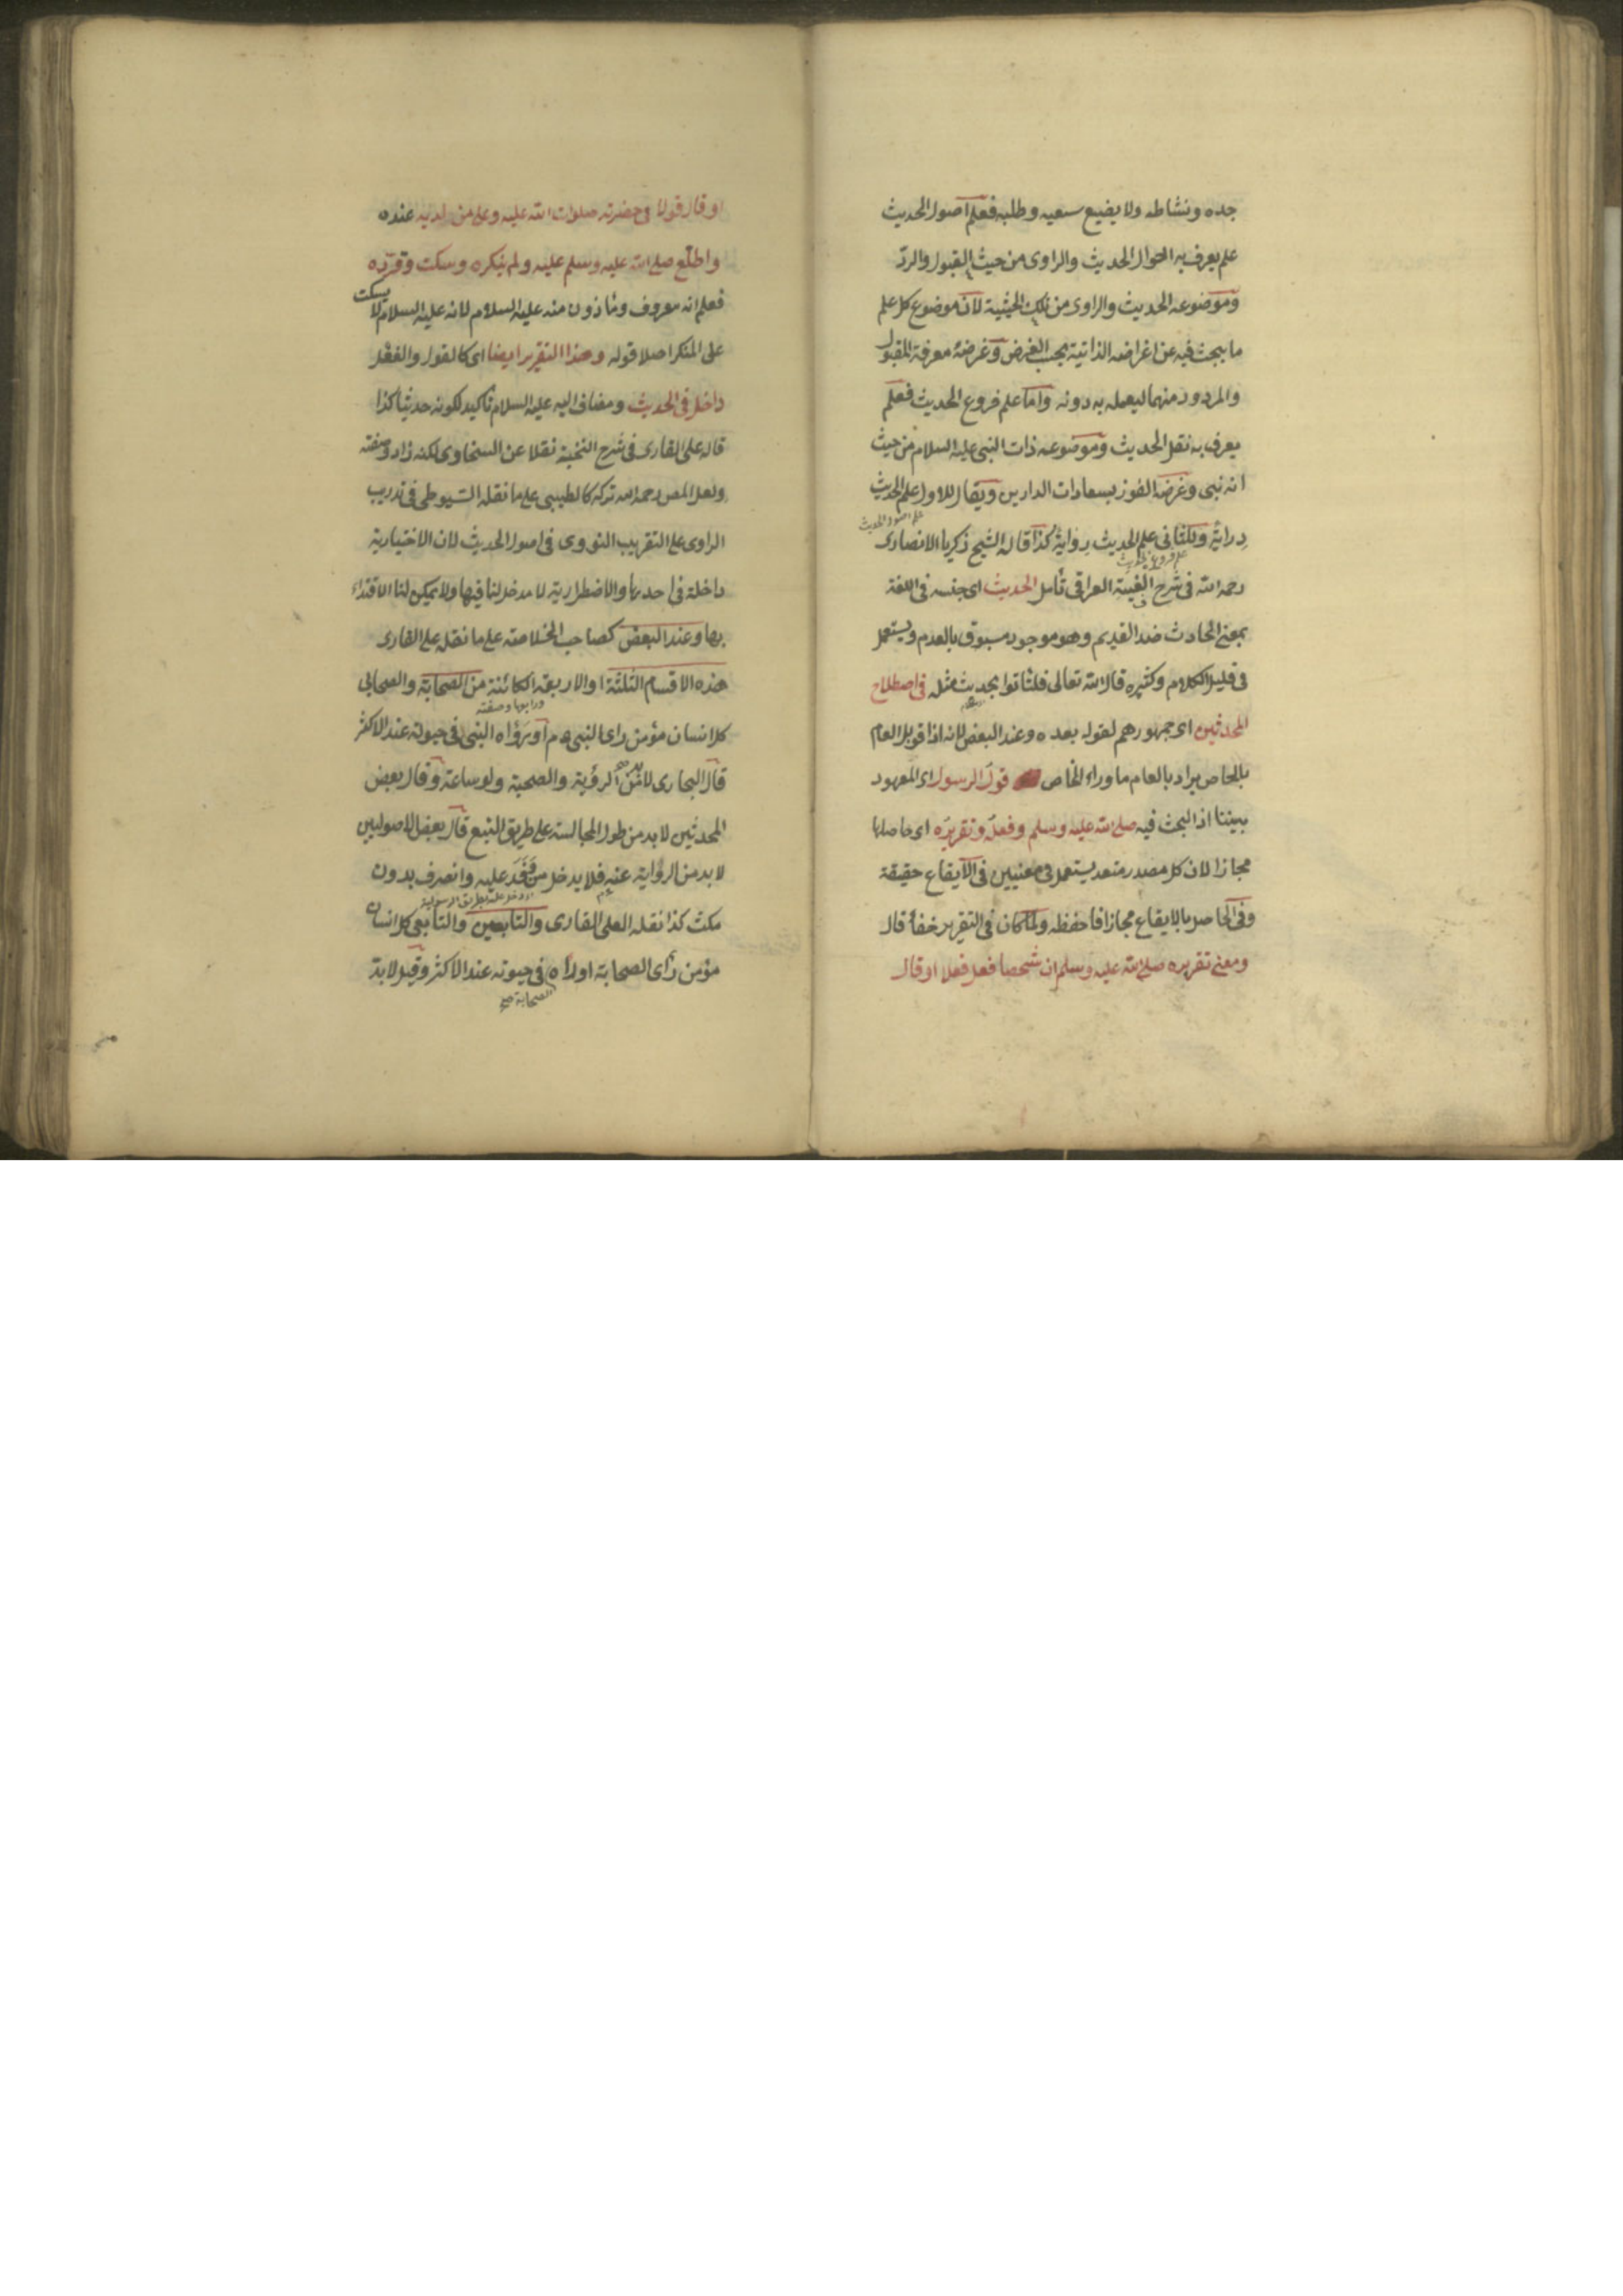 جده ونشاطه ولا يضيع سعيه وطلبه فعلم اصول الحديث
علم يعرف به احوال الحديث والراوى من حيث القبول والردّ
وموضوعه الحديث والراوى من تلك الحيثية لان موضوع كل علم
ما يبحث فيه عن اغراضه الذاتية بحسب الغرض وغرضه معرفة المقبول
والمردود منهما ليعمله به دونه واما علم فروع الحديث فعلم
يعرف به نقل الحديث وموضوعه ذات النبى عليه السلام من حيث
انه نبى وغرضه الفوز بسعادات الدارين ويقال للاول علم الحديث
علم اصول الحديث
دراية وللثانى علم الحديث رواية كذا قاله الشيخ زكريا الانصارى
علم فروع الحديث
رحمه الله فى شرح الفية العراقى تأمل الحديث اى جنسه فى اللغة
بمعنى الحادث ضد القديم وهو موجود مسبوق بالعدم ويستعمل
فى قليل الكلام وكثيره قال الله تعالى فلئاتوا بحديث مثله فى اصطلاح
المحدثين اى جمهورهم لقوله بعده وعند البعض لانه اذا قوبل العام
بالخاص يراد بالعام ما وراء الخاص قول الرسول اى المعهود
بيننا اذ البحث فيه صلى الله عليه وسلم وفعله وتقريره اى حاصلها
مجازا لان كل مصدر متعد يستعمل فى معنيين فى الايقاع حقيقة
وفى الحاصل بالايقاع مجازا فاحفظه ولما كان فى التقرير خفأ قال
ومعنى تقريره صلى الله عليه وسلم ان شخصا فعل فعلا او قال
او قال قولا فى حضرته صلوات الله عليه وعلى من لديه عنده
واطلع صلى الله عليه وسلم عليه ولم ينكره وسكت وقرّره
فعلم انه معروف ومأذون منه عليه السلام لانه عليه السلام لا يسكت
على المنكر اصلا قوله وهذا التقرير ايضا اى كالقول والفعل
داخل فى الحديث ومضاف اليه عليه السلام تأكيد لكونه حديثا كذا
قاله على القارى فى شرح النخبة نقلا عن السخاوى لكنه زاد وصفته
ولعل المص رحمه الله تركه كالطيبى على ما نقله السيوطى فى تدريب
الراوى على التقريب النووى فى اصول الحديث لان الاختيارية
داخلة فى احدها والاضطرارية لا مدخل لنا فيها ولا يمكن لنا الاقتداء
بها وعند البعض كصاحب الخلاصة على ما نقله على القارى
هذه الاقسام الثلثة او الاربعة الكائنة من الصحابة والصحابى
كل انسان مؤمن راى النبى عم او رأه النبى فى حيوته عند الاكثر
قال البخارى لا بد من الرؤية والصحبة ولو ساعة وقال بعض
المحدثين لا بد من طول المجالسة على طريق التبع قال بعض الاصوليين
لا بد من الرواية عنه فلا يدخل من وفد عليه وانصرف بدون
مكث كذا نقله العلى القارى والتابعين والتابعى كل انسان
مؤمن رأى الصحابة او رأه فى حيوته عند الاكثر وقيل لا بدّ
الصحابة صح